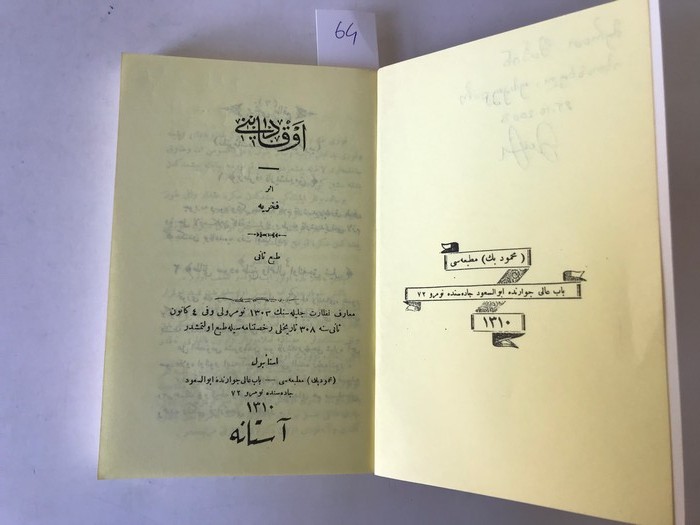 64
اثر
فخریه
طبع ثانی
معارف نظارت جلیله‌سنك ١٣٠٣ نومرولی وفی ٤ كانون
ثانی سنه ٣٠٨ تاریخلی رخصتنامه سیله طبع اولنمشدر
استانبول
(محمود بك) مطبعه‌سی — باب عالی جوارنده ابوالسعود
جاده سنده نومرو ٧٢
١٣١٠
آستانه
(محمود بك) مطبعه‌سی
باب عالی جوارنده ابوالسعود جاده سنده نومرو ٧٢
١٣١٠